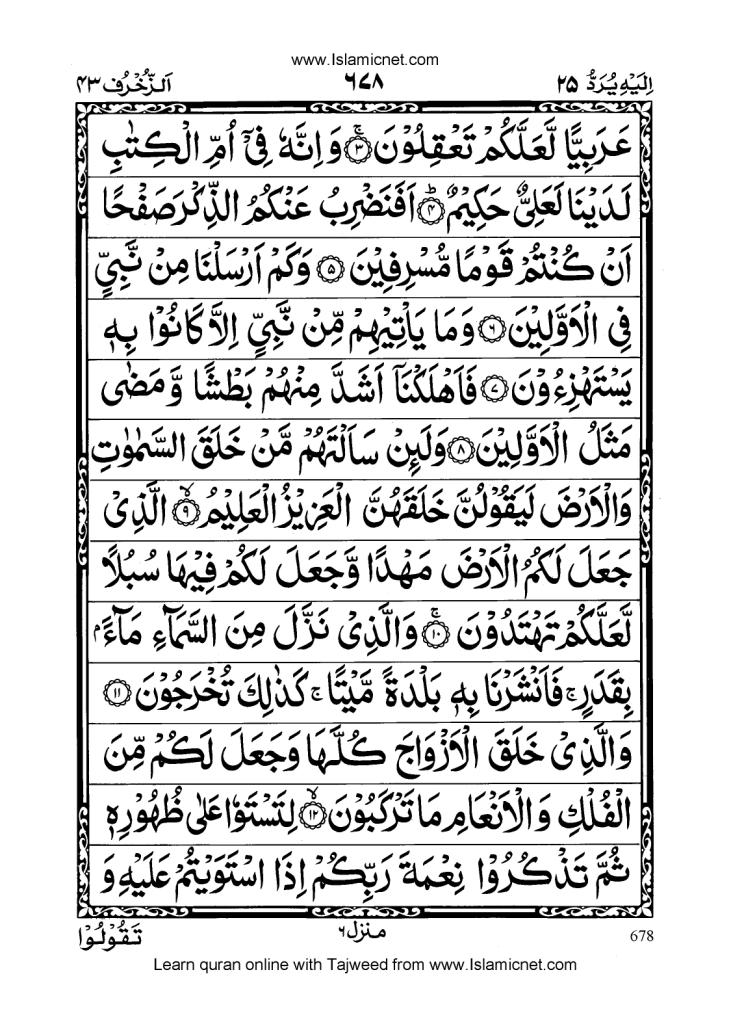 www.Islamicnet.com
اِلَيْهِ يُرَدُّ ۲۵ ۶۷۸ اَلزُّخْرُف ۴۳
عَرَبِيًّا لَّعَلَّكُمْ تَعْقِلُوْنَ ۚ﴿۳﴾ وَ اِنَّهٗ فِيْۤ اُمِّ الْكِتٰبِ
لَدَيْنَا لَعَلِيٌّ حَكِيْمٌ ؕ﴿۴﴾ اَفَنَضْرِبُ عَنْكُمُ الذِّكْرَ صَفْحًا
اَنْ كُنْتُمْ قَوْمًا مُّسْرِفِيْنَ ﴿۵﴾ وَكَمْ اَرْسَلْنَا مِنْ نَّبِيٍّ
فِي الْاَوَّلِيْنَ ﴿۶﴾ وَمَا يَاْتِيْهِمْ مِّنْ نَّبِيٍّ اِلَّا كَانُوْا بِهٖ
يَسْتَهْزِءُوْنَ ﴿۷﴾ فَاَهْلَكْنَاۤ اَشَدَّ مِنْهُمْ بَطْشًا وَّ مَضٰى
مَثَلُ الْاَوَّلِيْنَ ﴿۸﴾ وَلَئِنْ سَاَلْتَهُمْ مَّنْ خَلَقَ السَّمٰوٰتِ
وَالْاَرْضَ لَيَقُوْلُنَّ خَلَقَهُنَّ الْعَزِيْزُ الْعَلِيْمُ ۙ﴿۹﴾ الَّذِيْ
جَعَلَ لَكُمُ الْاَرْضَ مَهْدًا وَّجَعَلَ لَكُمْ فِيْهَا سُبُلًا
لَّعَلَّكُمْ تَهْتَدُوْنَ ۚ﴿۱۰﴾ وَالَّذِيْ نَزَّلَ مِنَ السَّمَآءِ مَآءًۢ
بِقَدَرٍ ۚ فَاَنْشَرْنَا بِهٖ بَلْدَةً مَّيْتًا ۚ كَذٰلِكَ تُخْرَجُوْنَ ﴿۱۱﴾
وَالَّذِيْ خَلَقَ الْاَزْوَاجَ كُلَّهَا وَجَعَلَ لَكُمْ مِّنَ
الْفُلْكِ وَالْاَنْعَامِ مَا تَرْكَبُوْنَ ۙ﴿۱۲﴾ لِتَسْتَوٗا عَلٰى ظُهُوْرِهٖ
ثُمَّ تَذْكُرُوْا نِعْمَةَ رَبِّكُمْ اِذَا اسْتَوَيْتُمْ عَلَيْهِ وَ
678 منزل۶ تَقُوْلُوْا
Learn quran online with Tajweed from www.Islamicnet.com